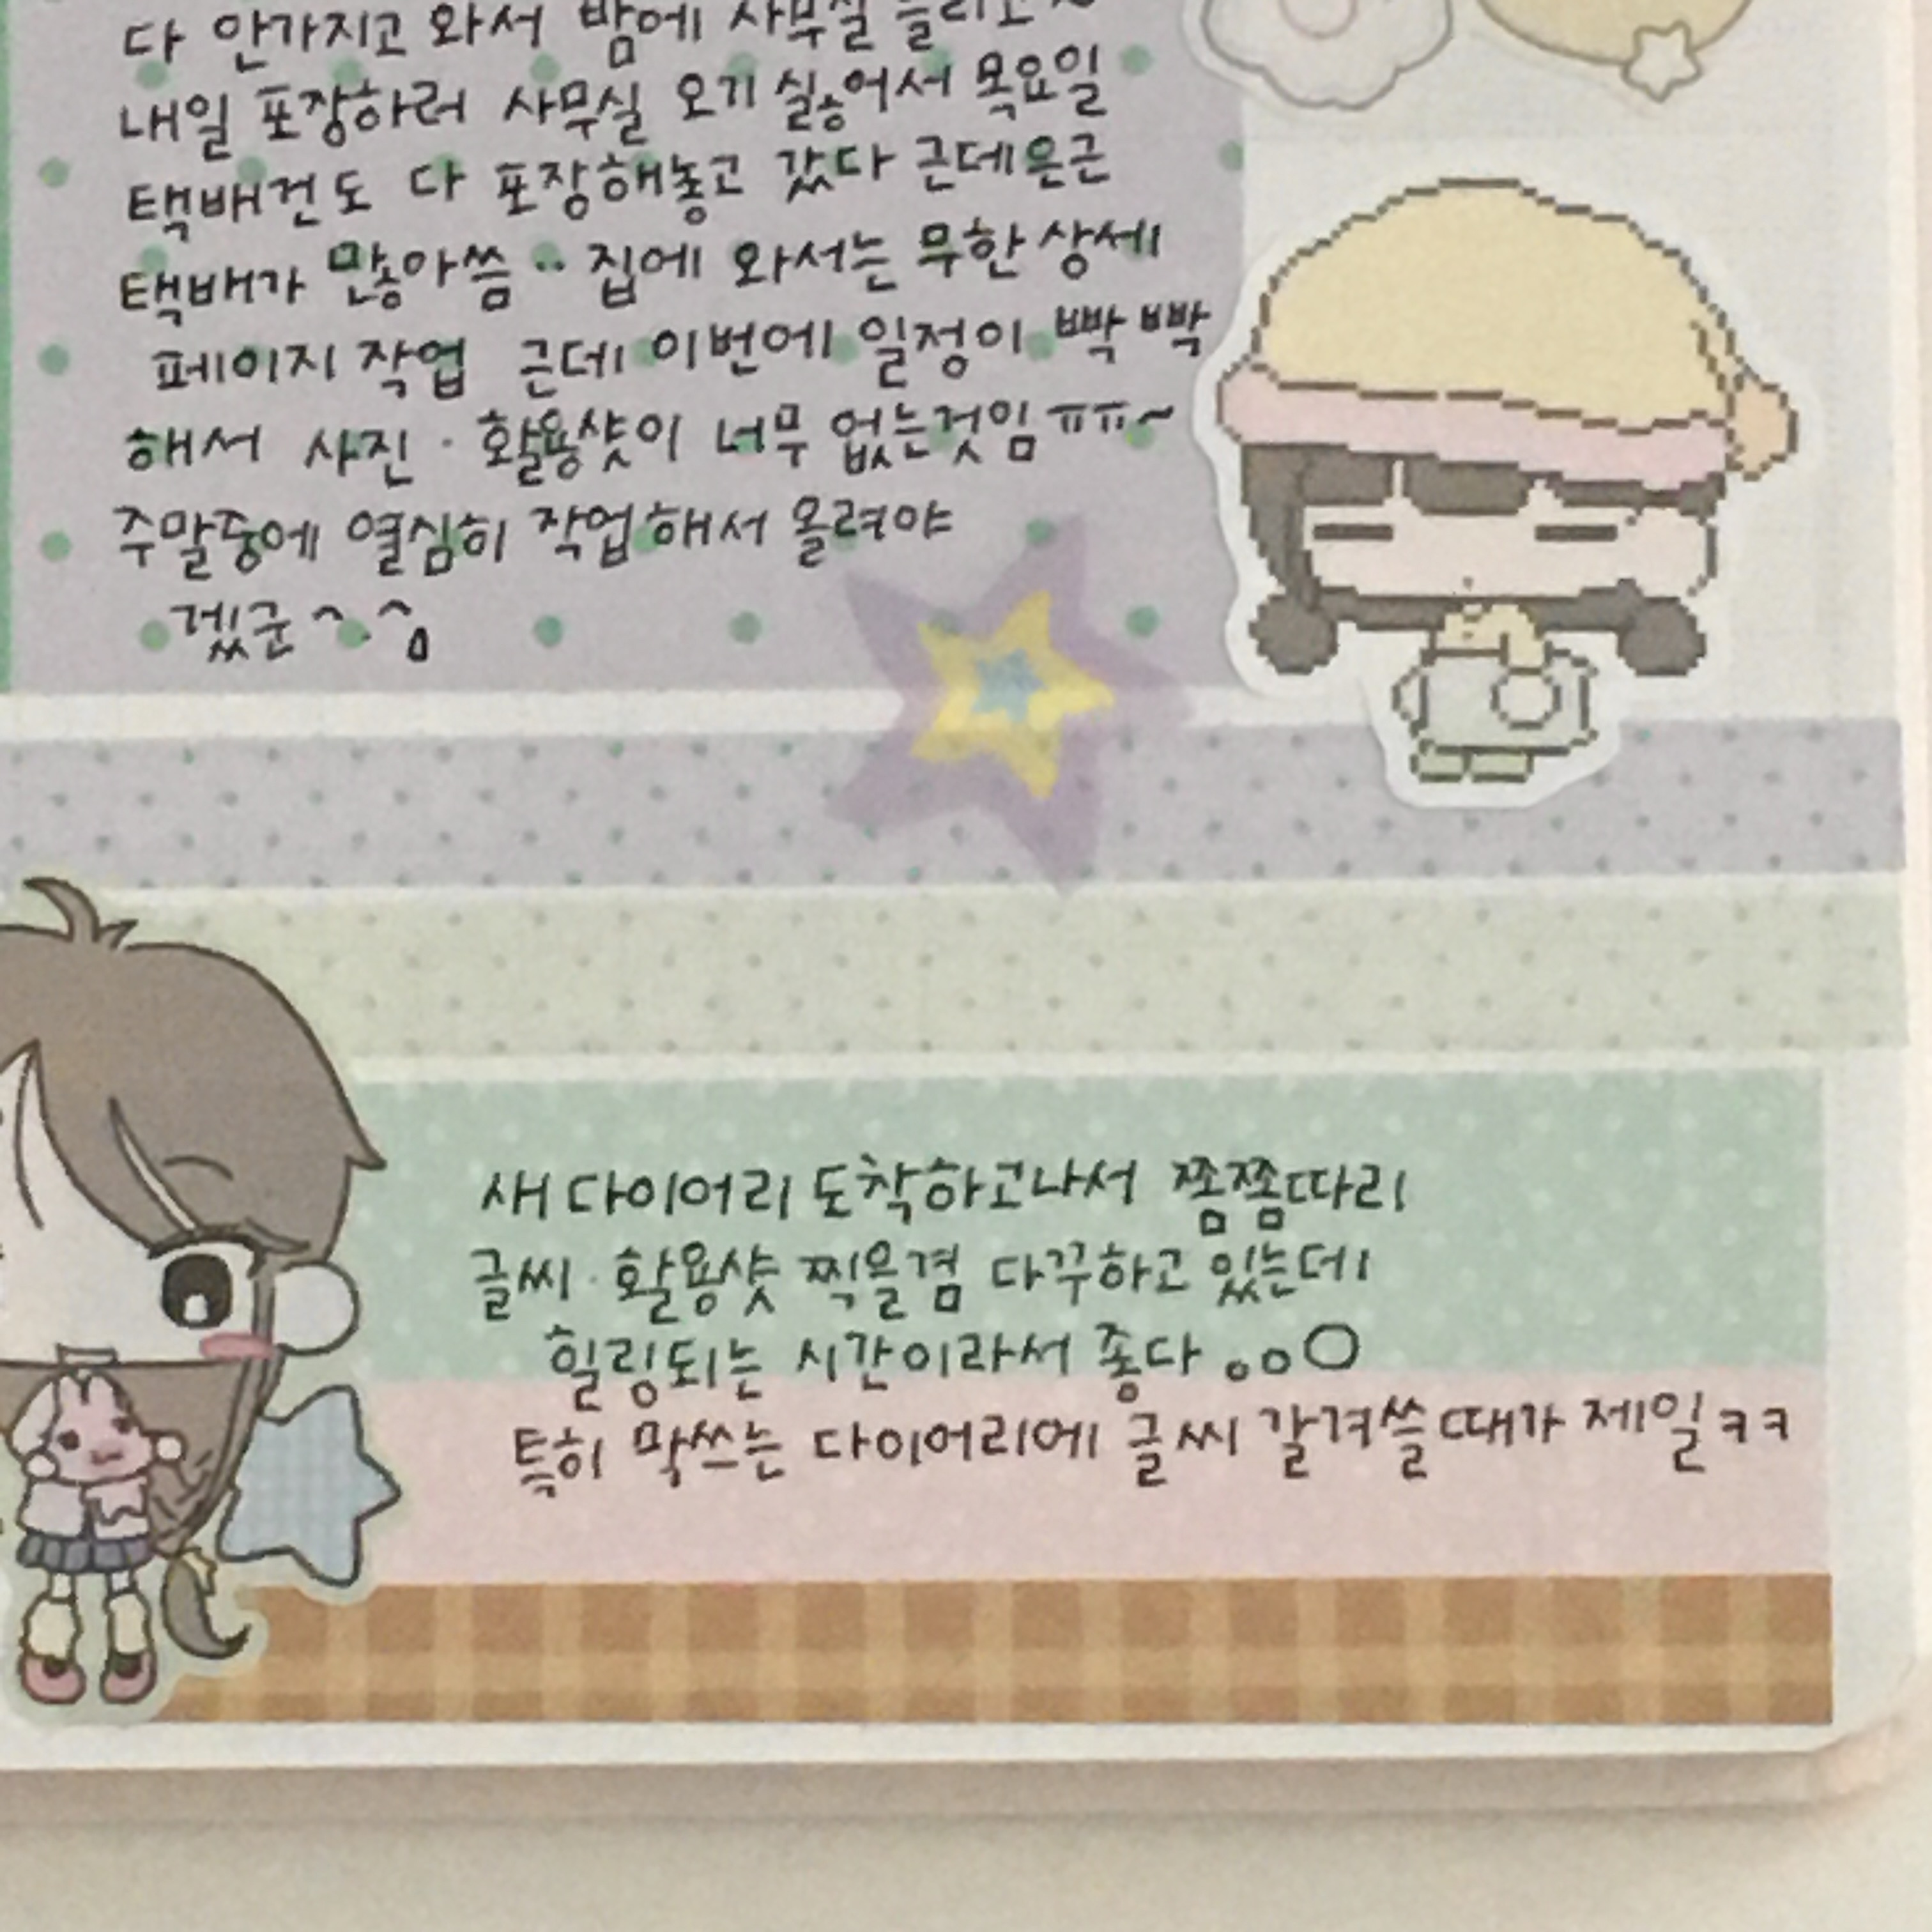 다 안가지고 와서 밤에 사무실 들리고~
내일 포장하러 사무실 오기 싫어서 목요일
택배건도 다 포장해놓고 갔다 근데은근
택배가 많아씀.. 집에 와서는 무한상세
페이지 작업 근데 이번에 일정이 빡빡
해서 사진·활용샷이 너무 없는것임ㅠㅠ~
주말중에 열심히 작업해서 올려야
겠군^.^
새 다이어리 도착하고나서 쫌쫌따리
글씨·활용샷 찍을겸 다꾸하고 있는데
힐링되는 시간이라서 좋다 。o○
특히 막쓰는 다이어리에 글씨 갈겨쓸때가 제일ㅋㅋ